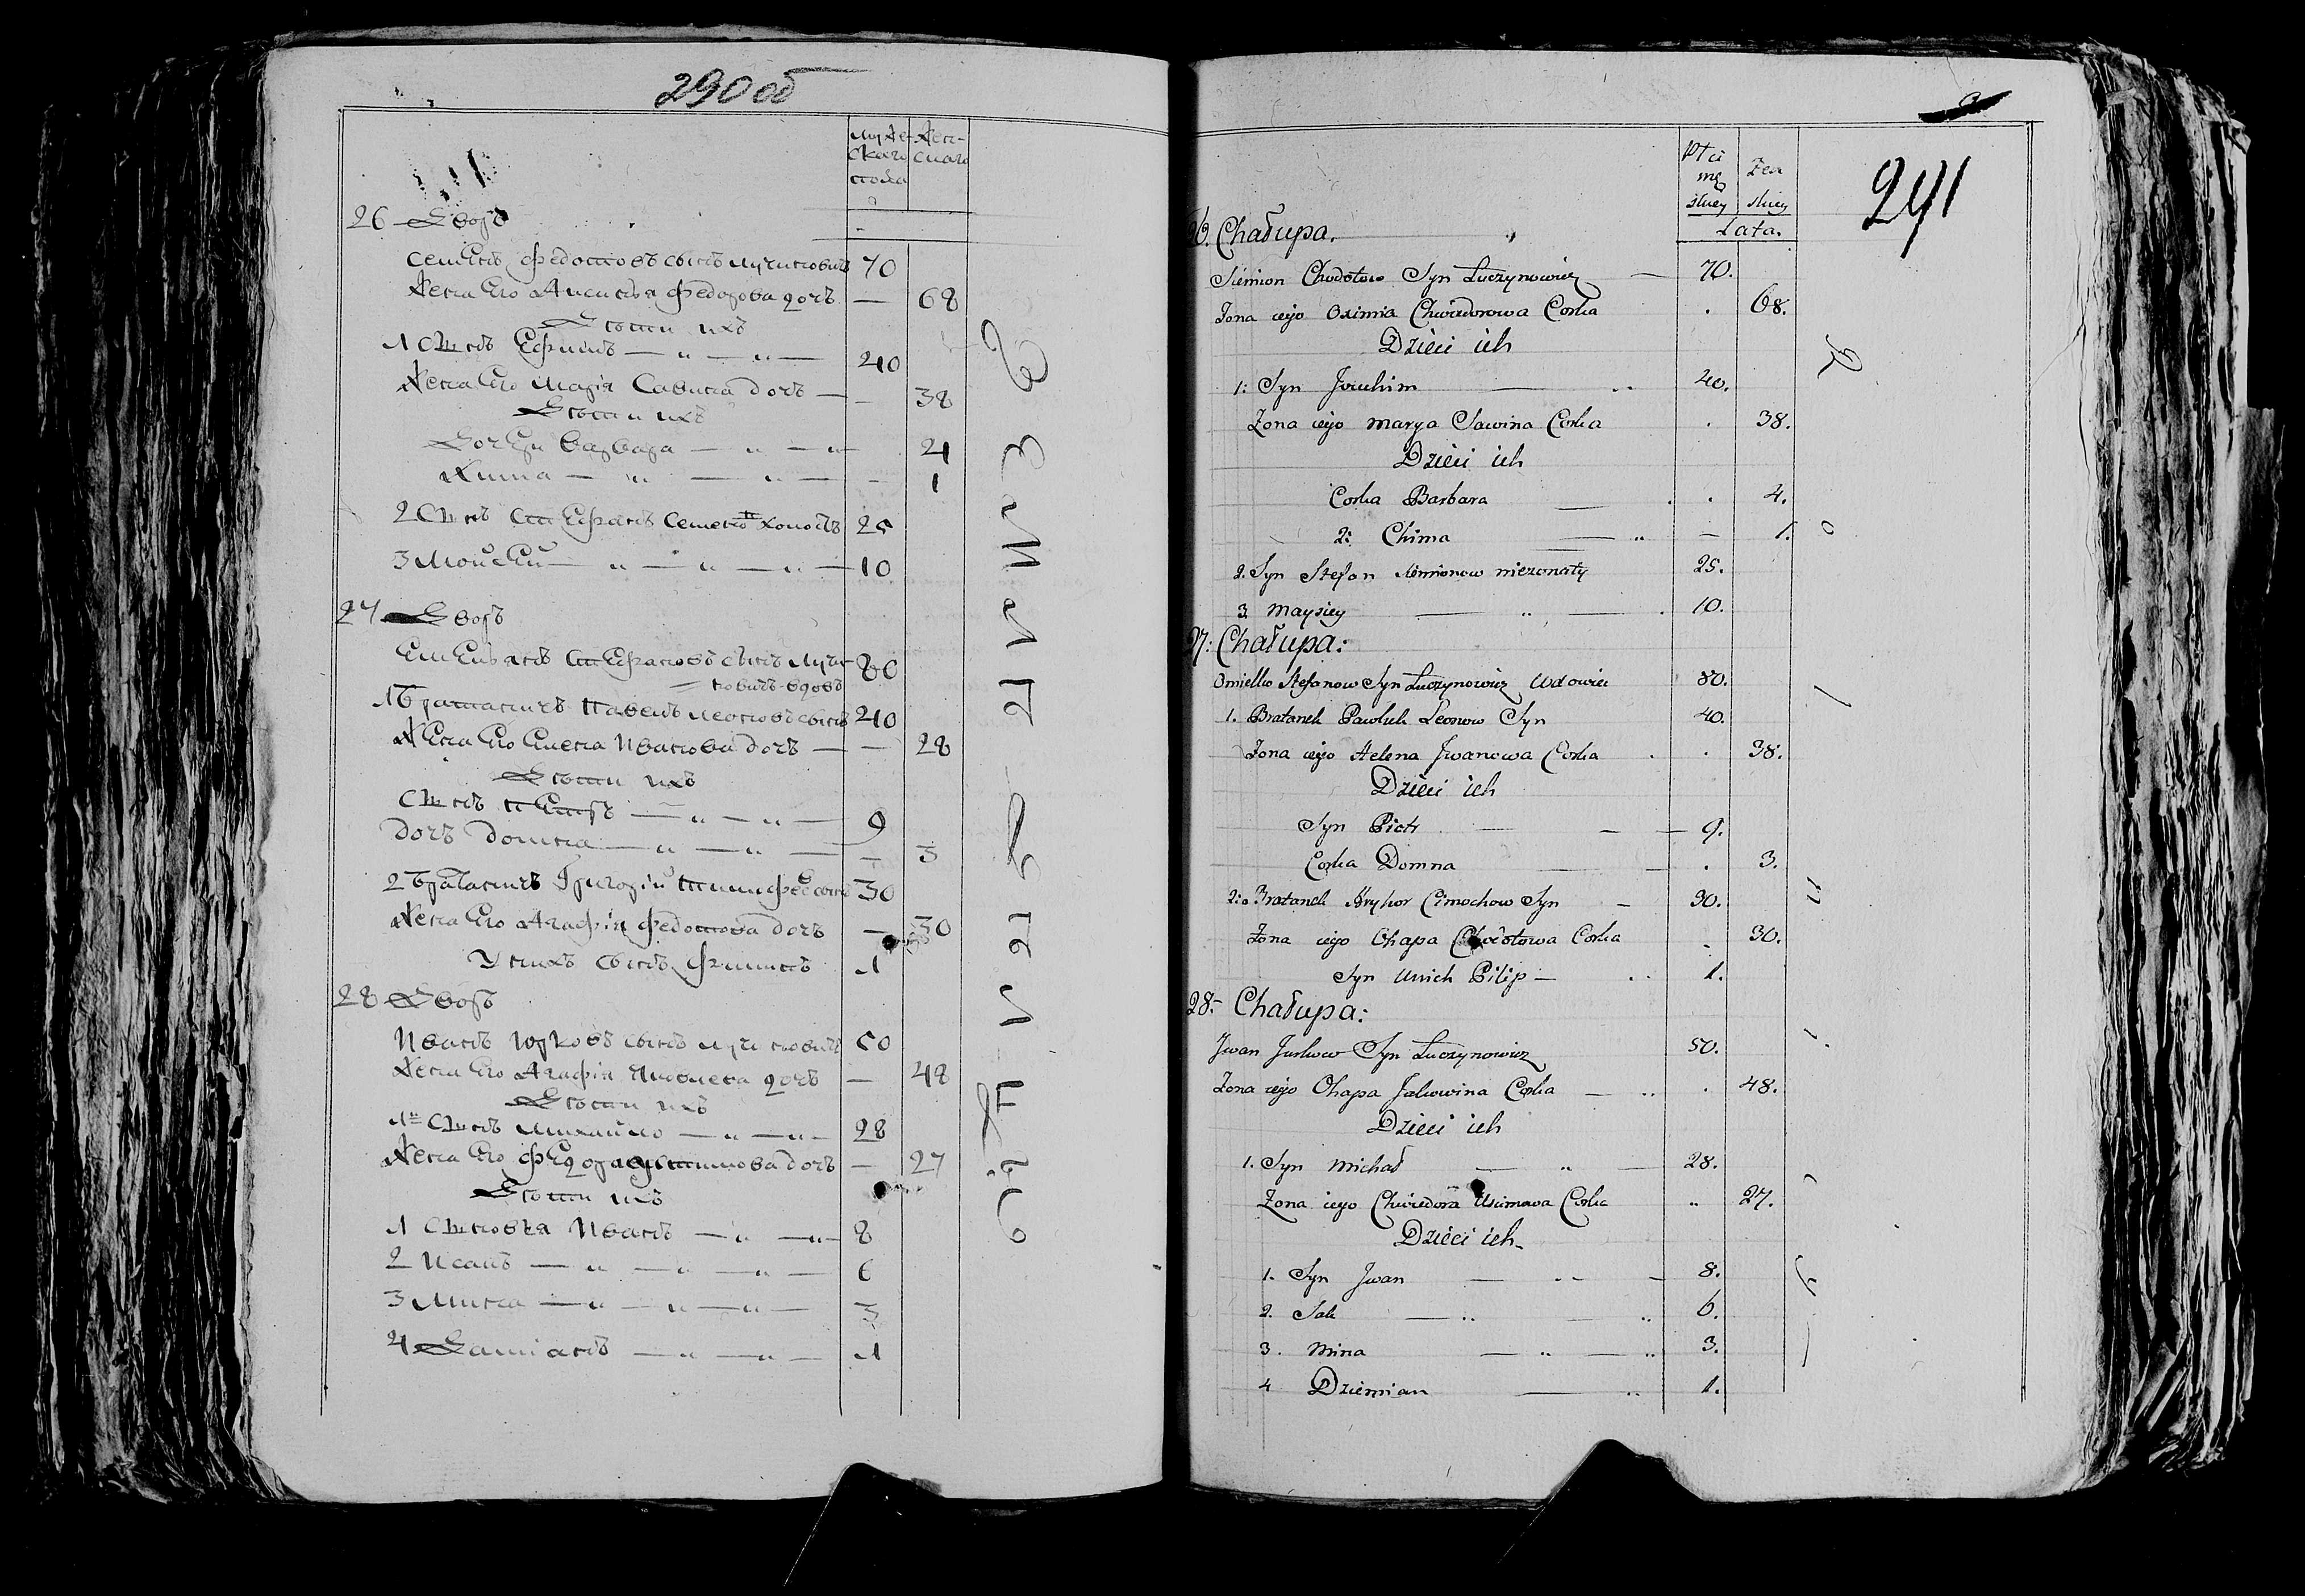 290 об
Муже-
скаго
пола
Жен-
скаго
26 Дворъ
Семенъ Федотовъ сынъ Лучиновичъ 70
Жена его Аксинья Федорова дочь — 68
Дети ихъ
1 Сынъ Ефимъ — „ — „ — 40
Жена его Марiя Савина дочь — — 38
Дети ихъ
Дочери Варвара — „ — „ 4
Химa — „ — „ — - 1
2 Сынъ Стефанъ Семеновъ холостъ 25
3 Мойсей — „ — „ — „ — 10
27 Дворъ
Емельянъ Стефановъ сынъ Лучи-
новичъ вдовъ 80
1 Братаничъ Павелъ Леоновъ сынъ 40
Жена его Елена Иванова дочь — — 28
Дети ихъ
Сынъ Петръ — „ — „ — 9
дочь Домна — „ — „ — — 3
2 Братаничъ Григорiй Тимофеевъ сынъ 30
Жена его Агафiя Федотова дочь — 30
У нихъ сынъ Филипъ 1
28 Дворъ
Иванъ Юрковъ сынъ Лучиновичъ 50
Жена его Агафiя Яковлева дочь — 48
Дети ихъ
1й Сынъ Михайло — „ — „ — 28
Жена его Федора Устимова дочь — 27
Дети ихъ
1 Сыновья Иванъ — „ — „ — 8
2 Исакъ — „ — „ — „ — 6
3 Мина — „ — „ — „ — 3
4 Дамiанъ — „ — „ — 1
241
Płci
mę
skiey
Żeń
skiey
Lata.
26. Chałupa.
Siemion Chodotow Syn Łuczynowicz — 70.
Zona iego Oxinnia Chwiedorowa Corka . 68.
Dzieci ich
1: Syn Jouchim — .. 40.
Zona iego Marya Sawina Corka . 38.
Dzieci ich
Corka Barbara — . . 4.
2: Chima — .. — 1.
2. Syn Stefan Siemionow niezonaty 25.
3 Maysiey — .. — . 10.
27: Chałupa:
Omielko Stefanow Syn Łuczynowicz Wdowiec 80.
1. Bratanek Pawluk Leonow Syn 40.
Zona iego Helena Jwanowa Corka . . 38.
Dzieci ich
Syn Piotr — — — 9.
Corka Domna — — . 3.
2: Bratanek Hryhor Cimochow Syn — 30.
Zona iego Ohapa Chodotowa Corka . 30.
Syn Unich Pilip — . . 1.
28:- Chałupa:
Jwan Jurkow Syn Łuczynowicz 50.
Zona iego Ohapa Jakowina Corka — .. . 48.
Dzieci ich
1. Syn Michał — „ — 28.
Zona iego Chwiedora Uscimowa Corka .. 27.
Dzieci ich-
1. Syn Jwan — .. — 8.
2. Sak — .. — .. 6.
3. Mina — .. — .. 3.
4 Dziemian — .. 1.